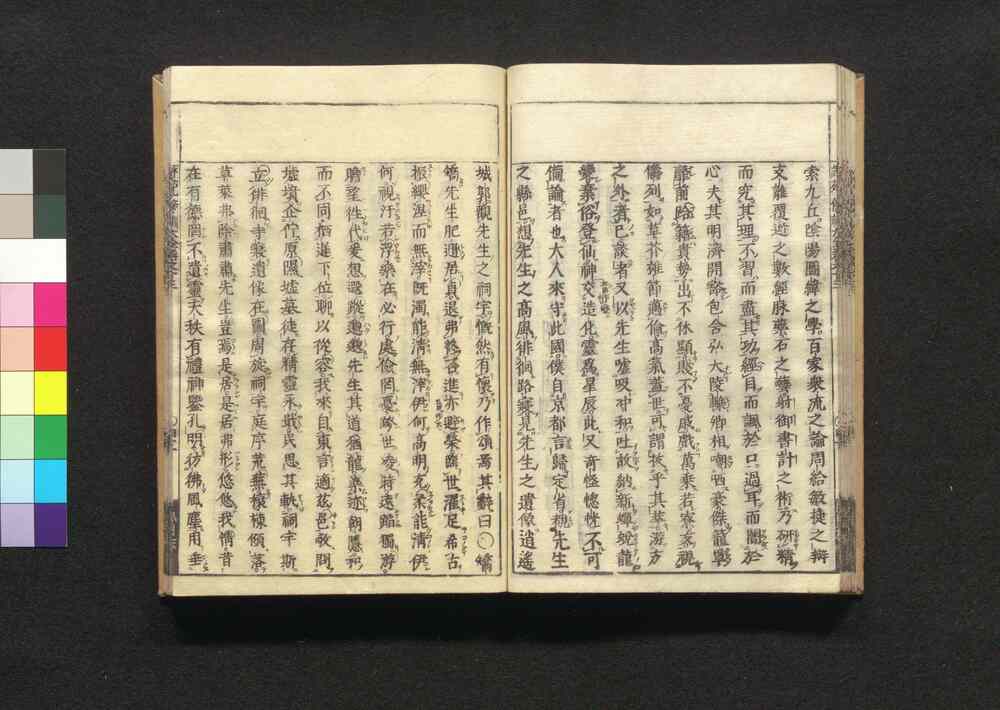 索九丘陰陽圖緯之學百家衆流之論周給敏捷之辯
支離覆逆之數經脉藥石之藝射御書計之術乃研精
而究其理不習而盡其功經目而諷於口過耳而闇於
心夫其明濟開豁包含弘大陵轢卿相嘲哂豪傑籠罩
靡前跆籍貴勢出不休顯賤不憂戚戲萬乘若寮友視
儔列如草芥雄節邁倫高氣蓋世可謂拔乎其萃游方
之外者已談者又以先生噓吸沖和吐故納新蟬蛻龍
變棄俗登仙神交造化靈爲星辰此又奇怪惚恍不可
備論者也大人來守此國僕自京都言歸定省覩先生
之縣邑想先生之高風徘徊路寢見先生之遺像逍遥
城郭觀先生之祠宇慨然有懷乃作頌焉其辭曰〇矯
矯先生肥遁居貞退弗終否進亦避榮臨世濯足希古
振纓涅而無滓既濁能清無滓伊何高明克柔能清伊
何視汙若浮樂在必行處儉罔憂跨世凌時遠蹈獨游
瞻望往代爰想遐蹤邈邈先生其道猶龍染迹朝隱和
而不同栖遲下位聊以從容我來自東言適茲邑敬問
墟墳企佇原隰墟墓徒存精靈永戢民思其軌祠宇斯
立徘徊寺寢遺像在圖周旋祠宇庭序荒蕪榱棟傾落
草萊弗除肅肅先生豈焉是居是居弗形悠悠我情昔
在有德罔不遺靈天秩有禮神鑒孔明彷彿風塵用垂